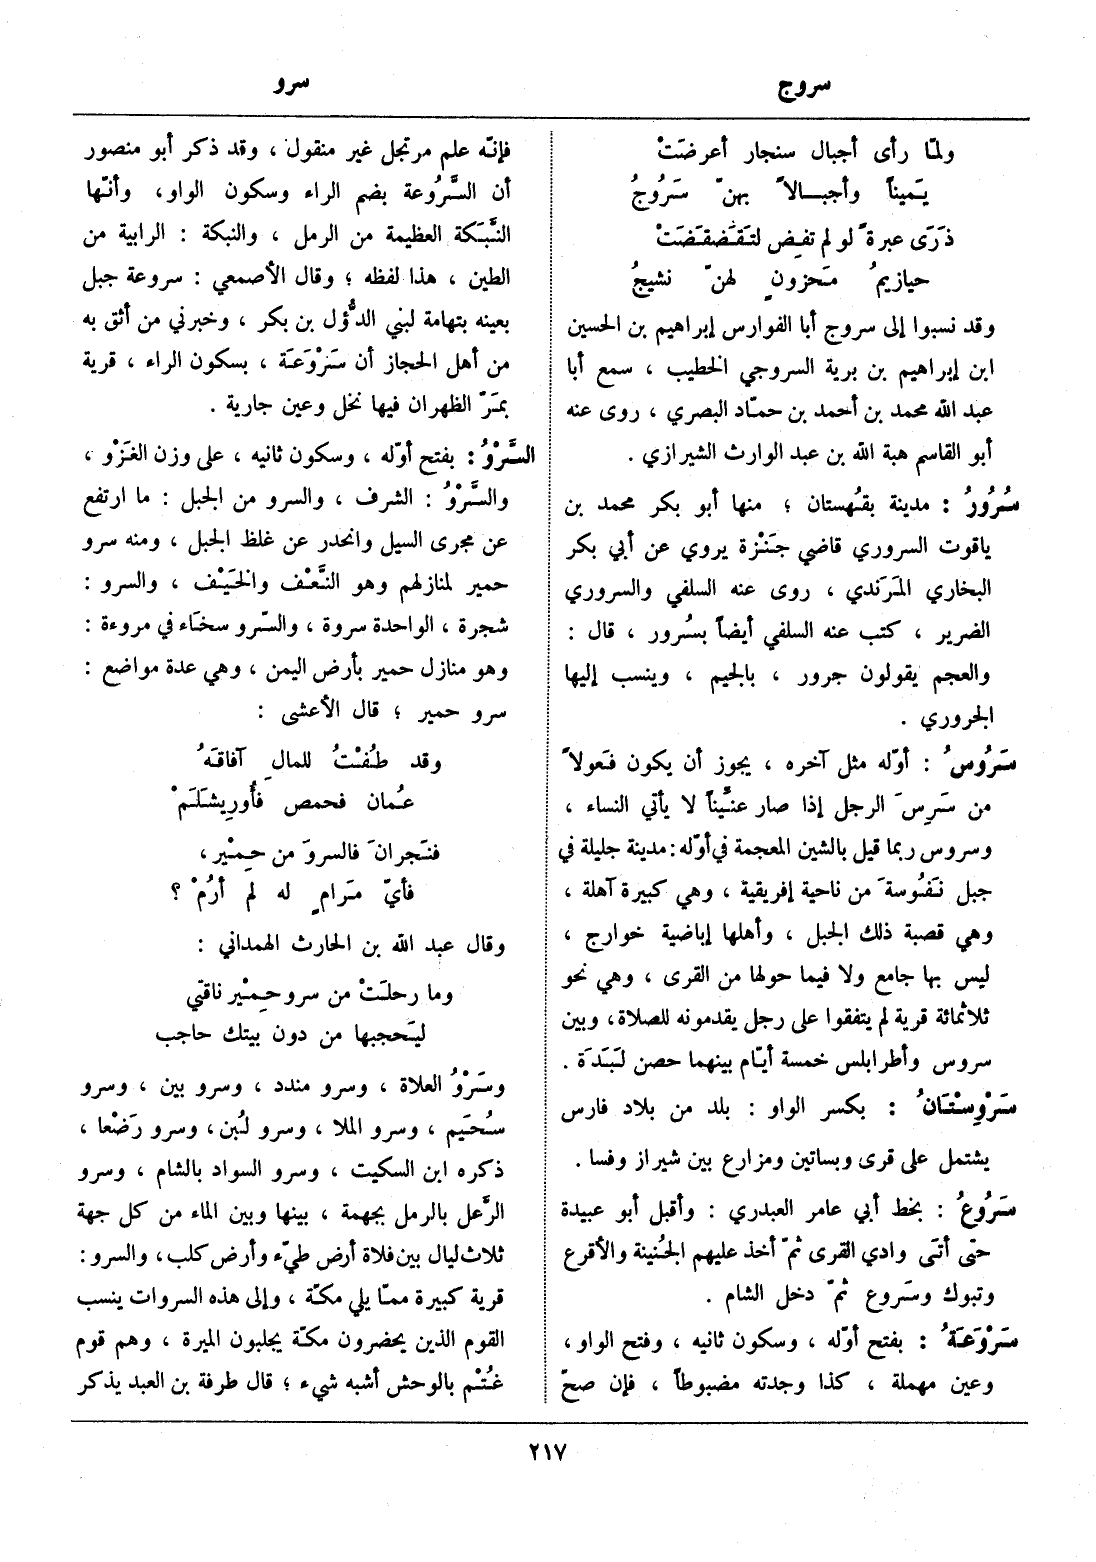 سروج
سرو
ولمّا رأى أجبال سنجار أعرضَتْ
يَميناً وأجبــالاً بهنّ سَرُوجُ
ذَرَى عبرةً لو لم تفِض لتَقَضقَضَتْ
حيازيمُ مَحزونٍ لهنّ نشيجُ
وقد نسبوا إلى سروج أبا الفوارس إبراهيم بن الحسين
ابن إبراهيم بن برية السروجي الخطيب ، سمع أبا
عبد الله محمد بن أحمد بن حمّاد البصري ، روى عنه
أبو القاسم هبة الله بن عبد الوارث الشيرازي .
سُرُورُ : مدينة بقُهستان ؛ منها أبو بكر محمد بن
ياقوت السروري قاضي جَنْزة يروي عن أبي بكر
البخاري المَرَندي ، روى عنه السلفي والسروري
الضرير ، كتب عنه السلفي أيضاً بسُرور ، قال :
والعجم يقولون جرور ، بالجيم ، وينسب إليها
الجروري .
سَرُوسُ : أوّله مثل آخره ، يجوز أن يكون فَعولاً
من سَرِسَ الرجل إذا صار عنّيناً لا يأتي النساء ،
وسروس ربما قيل بالشين المعجمة في أوّله : مدينة جليلة في
جبل نَفُوسةَ من ناحية إفريقية ، وهي كبيرة آهلة ،
وهي قصبة ذلك الجبل ، وأهلها إباضية خوارج ،
ليس بها جامع ولا فيما حولها من القرى ، وهي نحو
ثلاثمائة قرية لم يتفقوا على رجل يقدمونه للصلاة ، وبين
سروس وأطرابلس خمسة أيّام بينهما حصن لَبَدَة .
سَرْوِسْتَانُ : بكسر الواو : بلد من بلاد فارس
يشتمل على قرى وبساتين ومزارع بين شيراز وفسا .
سَرُوعُ : بخط أبي عامر العبدري : وأقبل أبو عبيدة
حتّى أتَى وادي القرى ثمّ أخذ عليهم الجُنينة والأقرع
وتبوك وسَروع ثمّ دخل الشام .
سَرْوَعَةُ : بفتح أوّله ، وسكون ثانيه ، وفتح الواو ،
وعين مهملة ، كذا وجدته مضبوطاً ، فإن صحّ
فإنّه علم مرتجل غير منقول ، وقد ذكر أبو منصور
أن السَّرُوعة بضم الراء وسكون الواو ، وأنّها
النَّبَكة العظيمة من الرمل ، والنبكة : الرابية من
الطين ، هذا لفظه ؛ وقال الأصمعي : سروعة جبل
بعينه بتهامة لبني الدُّؤل بن بكر ، وخبرني من أثق به
من أهل الحجاز أن سَرْوَعَة ، بسكون الراء ، قرية
بمَرّ الظهران فيها نخل وعين جارية .
السَّرْوُ : بفتح أوّله ، وسكون ثانيه ، على وزن الغَزْو ،
والسَّرْوُ : الشرف ، والسرو من الجبل : ما ارتفع
عن مجرى السيل وانحدر عن غلظ الجبل ، ومنه سرو
حمير لمنازلهم وهو النَّعْف والخَيْف ، والسرو :
شجرة ، الواحدة سروة ، والسّرو سخاء في مروءة :
وهو منازل حمير بأرض اليمن ، وهي عدة مواضع :
سرو حمير ؛ قال الأعشى :
وقد طُفْتُ للمالِ آفاقَهُ
عُمان فحمص فأُورِيشَلَمْ
فنَجرانَ فالسروَ من حِمْير ،
فأيّ مَرامٍ له لم أرُمْ ؟
وقال عبد الله بن الحارث الهمداني :
وما رحلَتْ من سرو حِمْير ناقتي
ليَحجبها من دون بيتك حاجب
وسَرْوُ العلاة ، وسرو مندد ، وسرو بين ، وسرو
سُحَيم ، وسرو الملا ، وسرو لُبن ، وسرو رَضْعا ،
ذكره ابن السكيت ، وسرو السواد بالشام ، وسرو
الرَّعل بالرمل بجهمة ، بينها وبين الماء من كل جهة
ثلاث ليال بين فلاة أرض طيّء وأرض كلب ، والسرو :
قرية كبيرة ممّا يلي مكّة ، وإلى هذه السروات ينسب
القوم الذين يحضرون مكّة يجلبون الميرة ، وهم قوم
غُتْم بالوحش أشبه شيء ؛ قال طرفة بن العبد يذكر
٢١٧